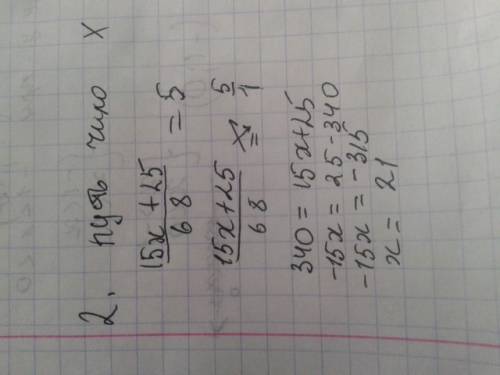 2. пусть число X
15x + 25 / 68 = 5
15x + 25 / 68 = 5 / 1
340 = 15x + 25
-15x = 25 - 340
-15x = -315
x = 21